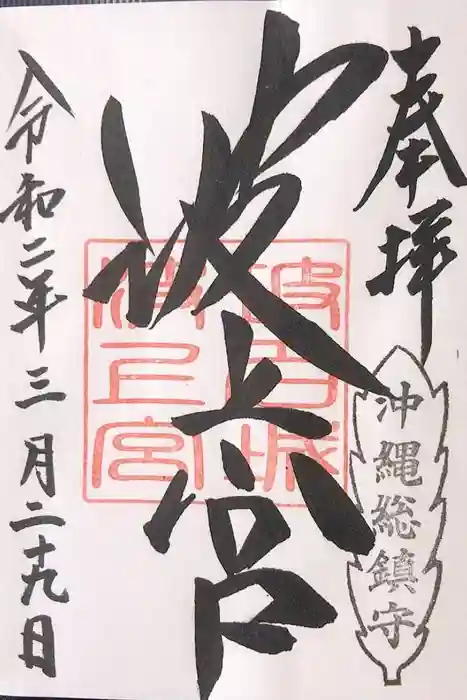 奉拝
沖縄総鎮守
波上宮
波上宮
令和二年三月二十九日